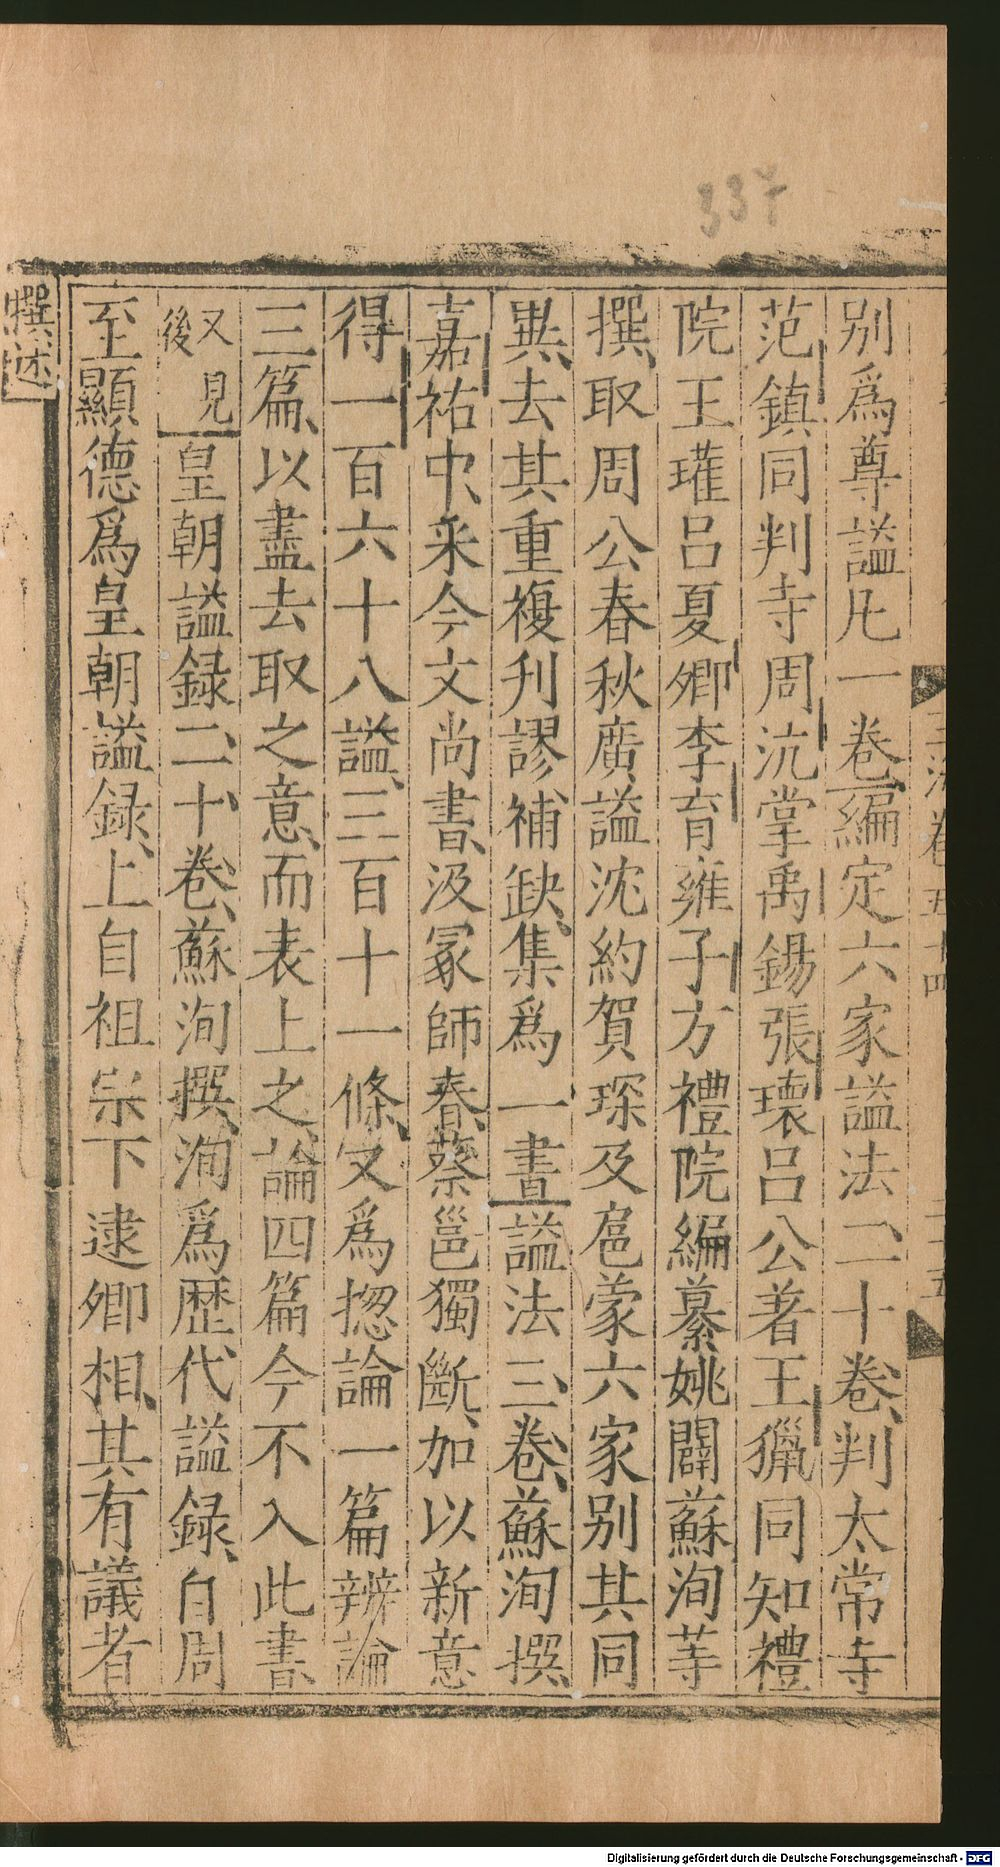 337
别爲尊謚凡一卷編定六家謚法二十卷判太常寺
范鎮同判寺周沆掌禹錫張瓌呂公著王獵同知禮
院王瓘呂夏卿李育雍子方禮院編纂姚闢蘇洵等
撰取周公春秋廣謚沈約賀琛及扈蒙六家别其同
異去其重複刋謬補缺集爲一書謚法三卷蘇洵撰
嘉祐中采今文尚書汲冢師春蔡邕獨斷加以新意
得一百六十八謚三百十一條又爲揔論一篇辨論
三篇以盡去取之意而表上之論四篇今不入此書
又見後皇朝謚録二十卷蘇洵撰洵爲歴代謚録自周
至顯德爲皇朝謚録上自祖宗下逮卿相其有議者
撰述
Digitalisierung gefördert durch die Deutsche Forschungsgemeinschaft - DFG